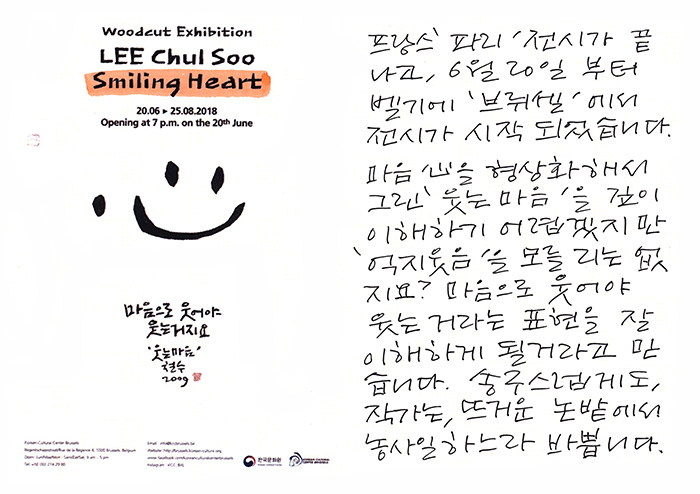 Woodcut Exhibition
LEE Chul Soo
Smiling Heart
20.06 ▸ 25.08.2018
Opening at 7 p.m. on the 20th June
마음으로 웃어야
웃는거지요
'웃는마음'
철수
2009
Korean Culture Center Brussels
Regentschapsstraat/Rue de la Régence 4, 1000 Brussels, Belgium
Tel: +32 (0)2 274 29 80
Email : info@kccbrussels.be
Website : http://brussels.korean-culture.org
www.facebook.com/koreanculturalcenterbrussels
한국문화원
KOREAN CULTURAL
CENTER BRUSSELS
프랑스' 파리 '전시가 끝
나고, 6월 20일 부터
벨기에 '브뤼셀' 에서
전시가 시작 되었습니다.
마음 '心'을 형상화해서
그린 '웃는마음'을 깊이
이해하기 어렵겠지만
'억지웃음'을 모를 리는 없
지요? 마음으로 웃어야
웃는 거라는 표현을 잘
이해하게 될거라고 믿
습니다. 송구스럽게도,
작가는, 뜨거운 논밭에서
농사일하느라 바쁩니다.